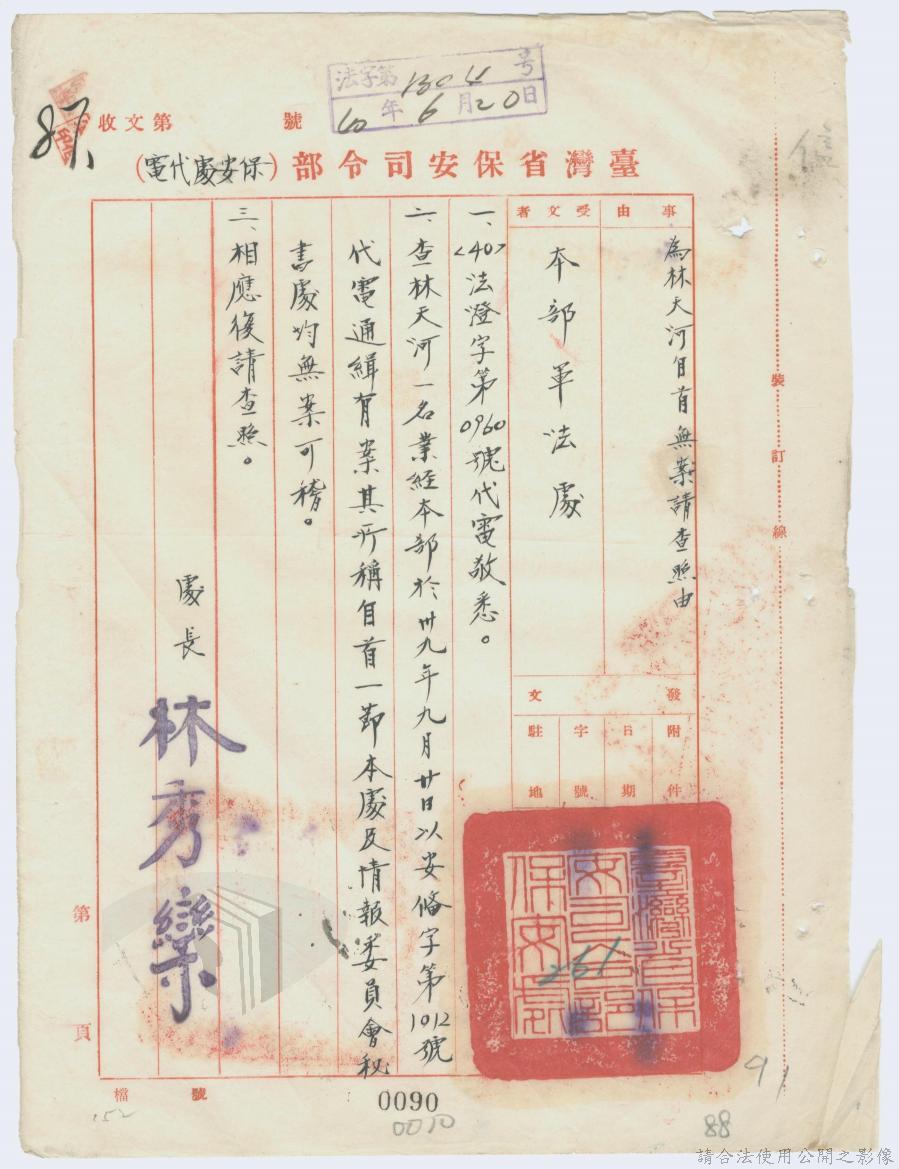 法字第1304号
40年6月20日
收文第 號
87
臺灣省保安司令部(保安處代電)
事由
為林天河自首無案請查照由
受文者
本部軍法處
發文
附件
日期
字號
駐地
一、<40>法澄字第0960號代電敬悉。
二、查林天河一名業經本部於卅九年九月廿日以安偹字第1012號
代電通緝有案其所稱自首一節本處及情報委員會秘
書處均無案可稽。
三、相應復請查照。
處長 林秀欒
臺灣省保安司令部保安處
261
裝訂線
第 頁
檔 號
0090
0070
152
91
88
請合法使用公開之影像